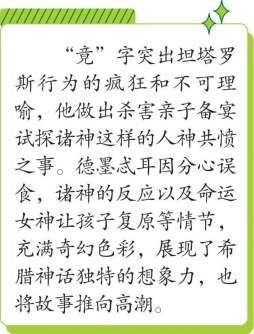 “竟”字突出坦塔罗
斯行为的疯狂和不可理
喻，他做出杀害亲子备宴
试探诸神这样的人神共愤
之事。德墨忒耳因分心误
食，诸神的反应以及命运
女神让孩子复原等情节，
充满奇幻色彩，展现了希
腊神话独特的想象力，也
将故事推向高潮。